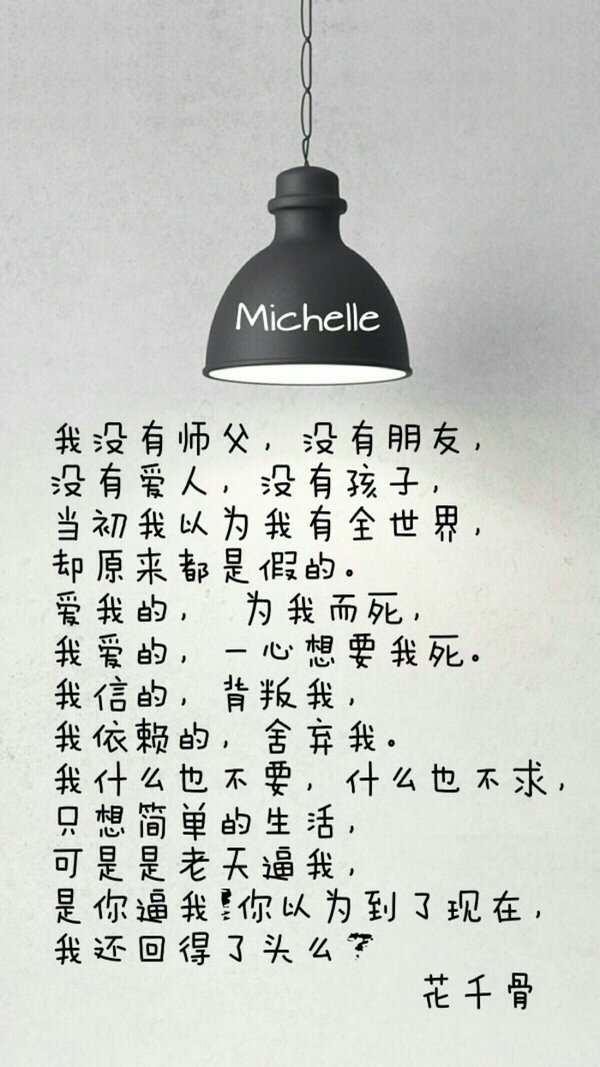 Michelle
我没有师父，没有朋友，
没有爱人，没有孩子，
当初我以为我有全世界，
却原来都是假的。
爱我的， 为我而死，
我爱的，一心想要我死。
我信的，背叛我，
我依赖的，舍弃我。
我什么也不要，什么也不求，
只想简单的生活，
可是是老天逼我，
是你逼我！你以为到了现在，
我还回得了头么？
花千骨